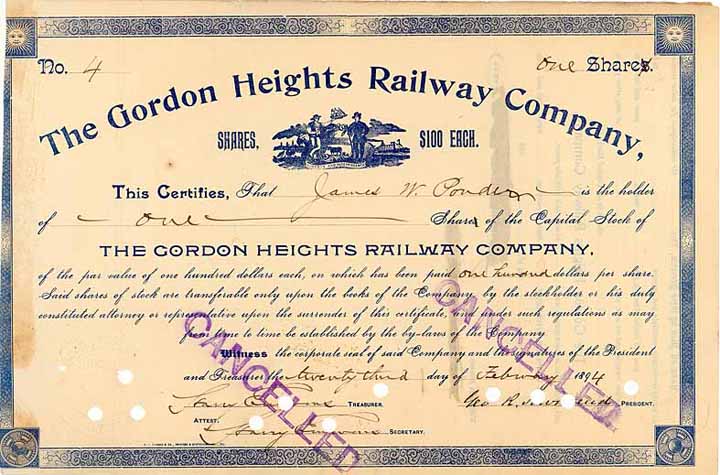 No. 4
one Shares.
The Gordon Heights Railway Company,
SHARES, $100 EACH.
This Certifies, That James W. Ponder is the holder
of one Shares of the Capital Stock of
THE GORDON HEIGHTS RAILWAY COMPANY,
of the par value of one hundred dollars each, on which has been paid one hundred dollars per share.
Said shares of stock are transferable only upon the books of the Company by the stockholder or his duly
constituted attorney or representative upon the surrender of this certificate, and under such regulations as may
from time to time be established by the by-laws of the Company.
Witness the corporate seal of said Company and the signatures of the President
and Treasurer the twenty third day of February 1894
TREASURER. Geo. R. PRESIDENT.
ATTEST:
Harry SECRETARY.
CANCELLED
CANCELLED